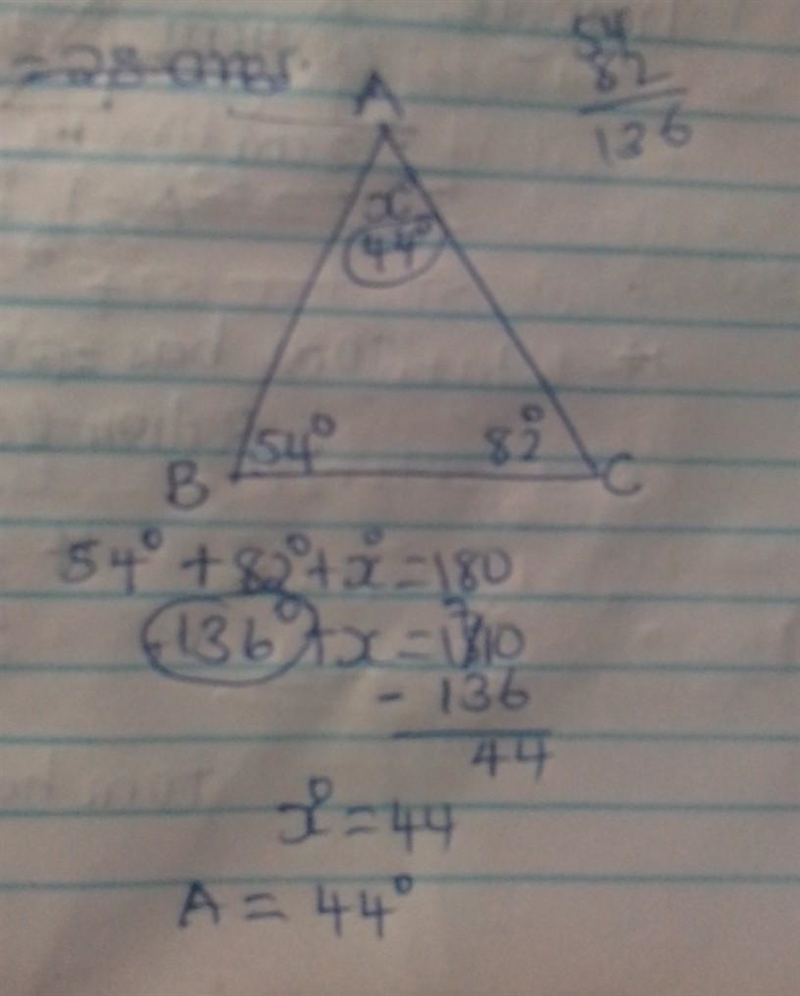 54
82
136
A
x°
44°
54° 82°
B C
54° + 82° + x° = 180
136° + x = 1810
- 136
44
x° = 44
A = 44°